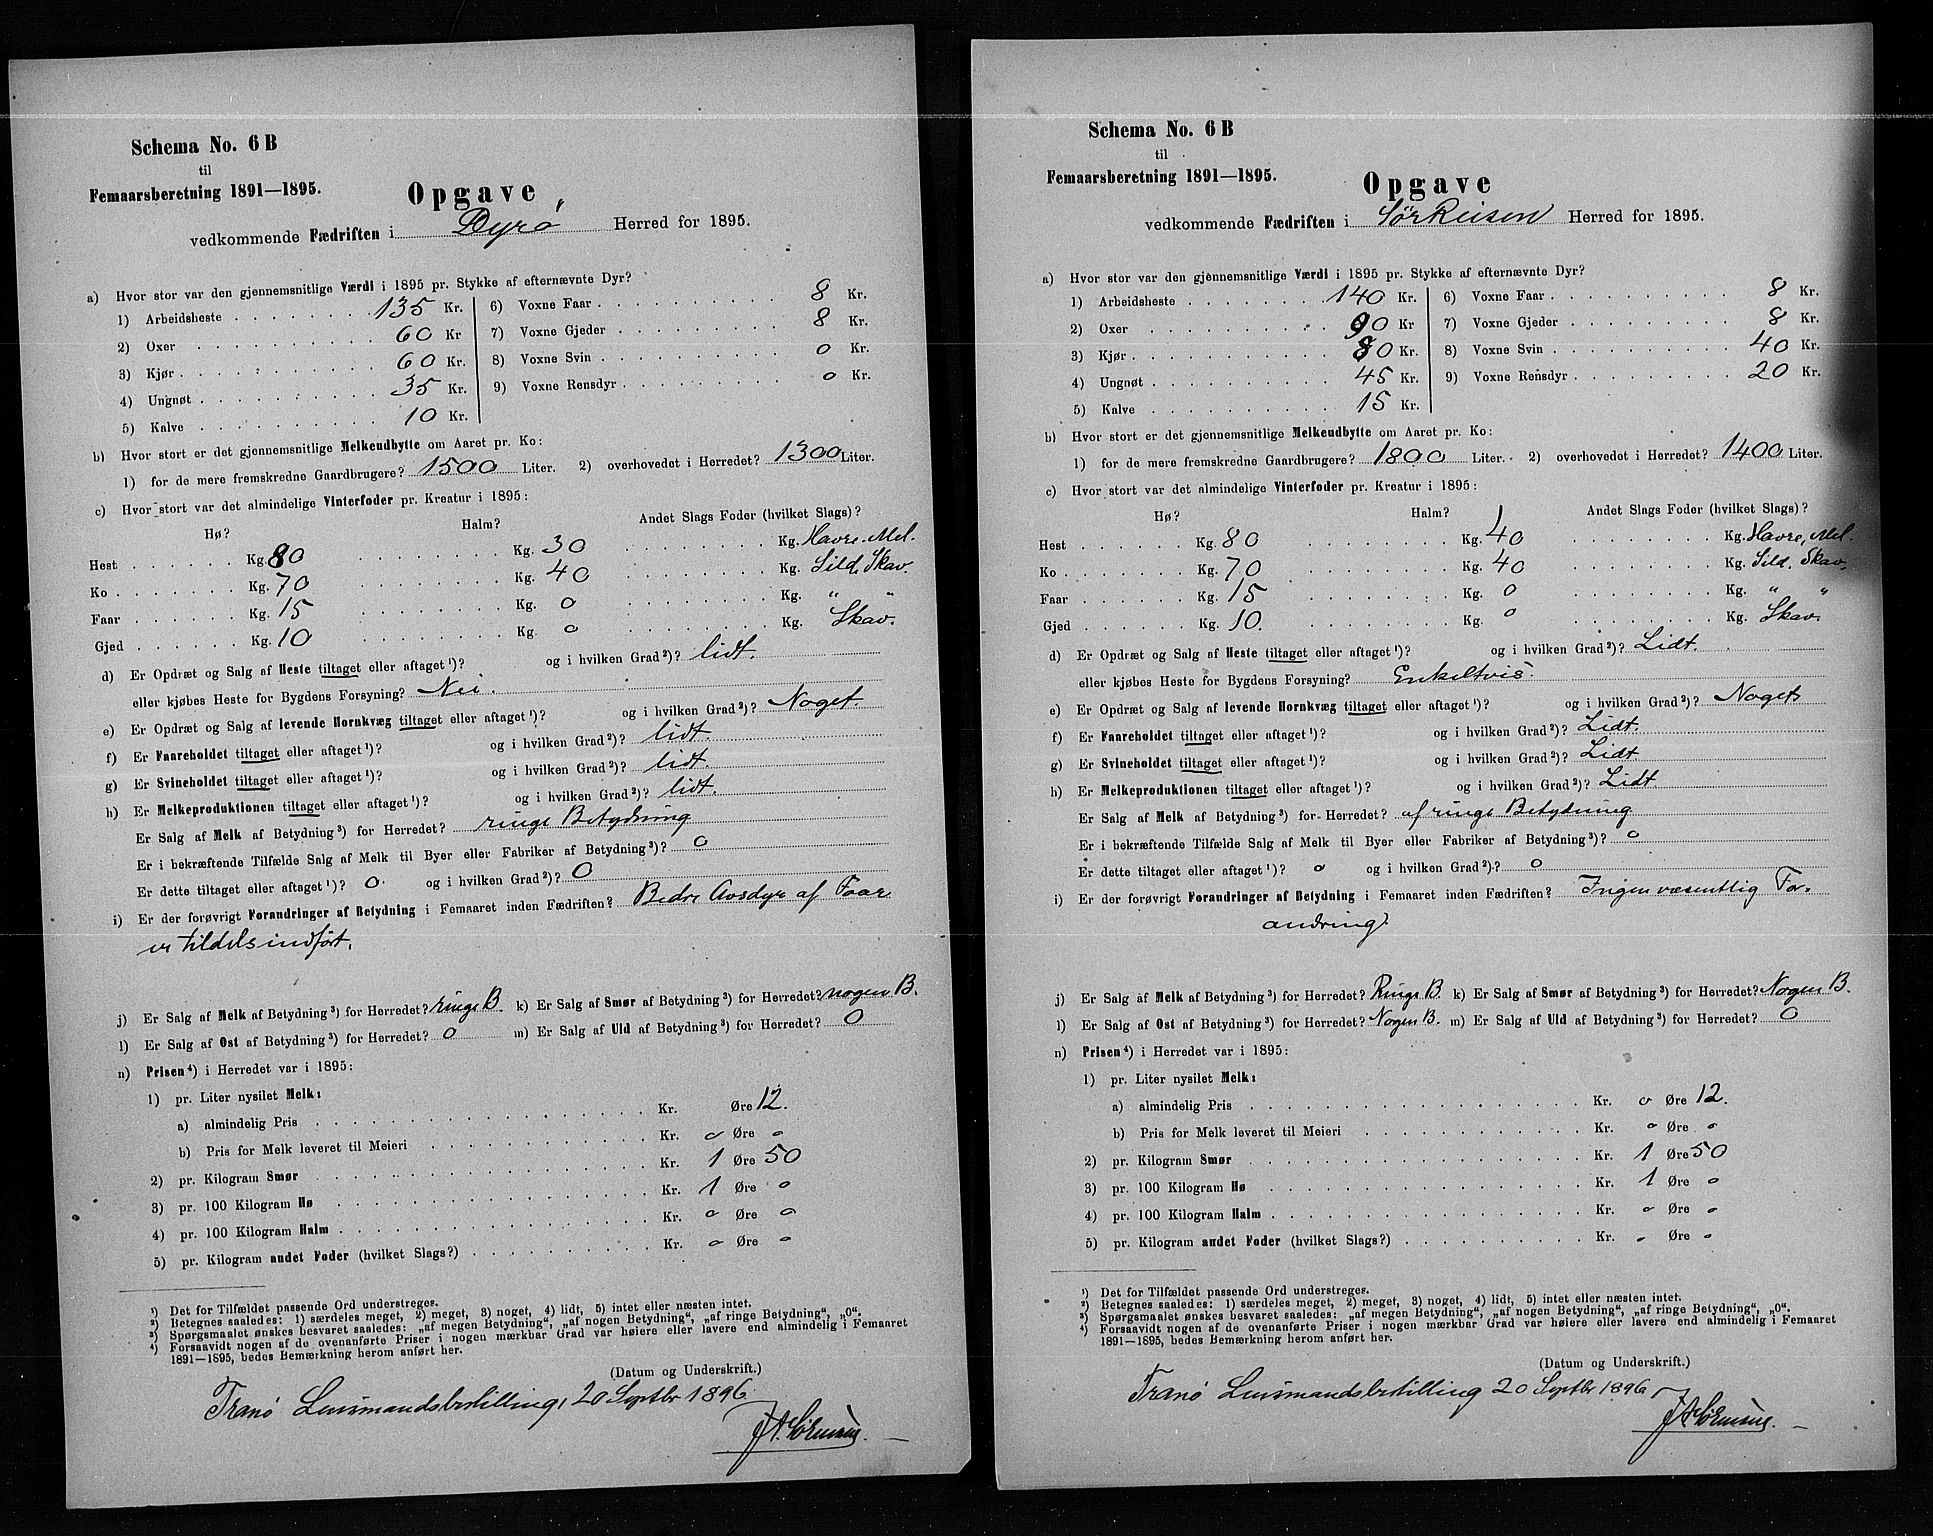 Schema No. 6 B
til
Femaarsberetning 1891—1895.
Opgave
vedkommende Fædriften i Dyrø Herred for 1895.
a) Hvor stor var den gjennemsnitlige Værdi i 1895 pr. Stykke af efternævnte Dyr?
1) Arbeidsheste 135 Kr. 6) Voxne Faar 8 Kr.
2) Oxer 60 Kr 7) Voxne Gjeder 8 Kr.
3) Kjør 60 Kr. 8) Voxne Svin 0 Kr.
4) Ungnøt 35 Kr. 9) Voxne Rensdyr 0 Kr.
5) Kalve 10 Kr.
b) Hvor stort er det gjennemsnitlige Melkeudbytte om Aaret pr. Ko:
1) for de mere fremskredne Gaardbrugere? 1500 Liter. 2) overhovedet i Herredet? 1300 Liter.
c) Hvor stort var det almindelige Vinterfoder pr. Kreatur i 1895:
Hø? Halm? Andet Slags Foder (hvilket Slags)?
Hest Kg. 80 Kg. 30 Kg. Havre. Mel.
Ko Kg. 70 Kg. 40 Kg. Sild. Skav.
Faar Kg. 15 Kg. 0 Kg. " "
Gjed Kg. 10 Kg. 0 Kg. Skav.
d) Er Opdræt og Salg af Heste tiltaget eller aftaget ¹)? og i hvilken Grad ²)? lidt.
eller kjøbes Heste for Bygdens Forsyning? Nei.
e) Er Opdræt og Salg af levende Hornkvæg tiltaget eller aftaget ¹)? og i hvilken Grad ²)? Noget.
f) Er Faareholdet tiltaget eller aftaget ¹)? og i hvilken Grad ²)? lidt.
g) Er Svineholdet tiltaget eller aftaget ¹)? og i hvilken Grad ²)? lidt.
h) Er Melkeproduktionen tiltaget eller aftaget ¹)? og i hvilken Grad ²)? lidt.
Er Salg af Melk af Betydning ³) for Herredet? ringe Betydning
Er i bekræftende Tilfælde Salg af Melk til Byer eller Fabriker af Betydning ³)? 0
Er dette tiltaget eller aftaget ¹)? 0. og i hvilken Grad ²)? 0
i) Er der forøvrigt Forandringer af Betydning i Femaaret inden Fædriften? Bedre Avsdyr af Faar
er tildels indført.
j) Er Salg af Melk af Betydning ³) for Herredet? ringe B. k) Er Salg af Smør af Betydning ³) for Herredet? nogen B.
l) Er Salg af Ost af Betydning ³) for Herredet? 0 m) Er Salg af Uld af Betydning ³) for Herredet? 0
n) Prisen ⁴) i Herredet var i 1895:
1) pr. Liter nysilet Melk:
a) almindelig Pris Kr. Øre 12.
b) Pris for Melk leveret til Meieri Kr. 0 Øre 0
2) pr. Kilogram Smør Kr. 1 Øre 50
3) pr. 100 Kilogram Hø Kr. 1 Øre 0
4) pr. 100 Kilogram Halm Kr. 0 Øre 0
5) pr. Kilogram andet Foder (hvilket Slags?) Kr. 0 Øre 0
¹) Det for Tilfældet passende Ord understreges.
²) Betegnes saaledes: 1) særdeles meget, 2) meget, 3) noget, 4) lidt, 5) intet eller næsten intet.
³) Spørgsmaalet ønskes besvaret saaledes: „af megen Betydning“, „af nogen Betydning“, „af ringe Betydning“, „0“.
⁴) Forsaavidt nogen af de ovenanførte Priser i nogen mærkbar Grad var høiere eller lavere end almindelig i Femaaret
1891—1895, bedes Bemærkning herom anført her.
(Datum og Underskrift.)
Tranø Lensmandsbestilling, 20 Septbr 1896.
J A. Sørensen.

Schema No. 6 B
til
Femaarsberetning 1891—1895.
Opgave
vedkommende Fædriften i Sørreisen Herred for 1895.
a) Hvor stor var den gjennemsnitlige Værdi i 1895 pr. Stykke af efternævnte Dyr?
1) Arbeidsheste 140 Kr. 6) Voxne Faar 8 Kr.
2) Oxer 90 Kr 7) Voxne Gjeder 8 Kr.
3) Kjør 80 Kr. 8) Voxne Svin 40 Kr.
4) Ungnøt 45 Kr. 9) Voxne Rensdyr 20 Kr.
5) Kalve 15 Kr.
b) Hvor stort er det gjennemsnitlige Melkeudbytte om Aaret pr. Ko:
1) for de mere fremskredne Gaardbrugere? 1800 Liter. 2) overhovedet i Herredet? 1400 Liter.
c) Hvor stort var det almindelige Vinterfoder pr. Kreatur i 1895:
Hø? Halm? Andet Slags Foder (hvilket Slags)?
Hest Kg. 80 Kg. 40 Kg. Havre, Mel.
Ko Kg. 70 Kg. 40 Kg. Sild. Skav.
Faar Kg. 15 Kg. 0 Kg. " "
Gjed Kg. 10. Kg. 0 Kg. Skav.
d) Er Opdræt og Salg af Heste tiltaget eller aftaget ¹)? og i hvilken Grad ²)? Lidt.
eller kjøbes Heste for Bygdens Forsyning? Enkeltvis.
e) Er Opdræt og Salg af levende Hornkvæg tiltaget eller aftaget ¹)? og i hvilken Grad ²)? Noget
f) Er Faareholdet tiltaget eller aftaget ¹)? og i hvilken Grad ²)? Lidt.
g) Er Svineholdet tiltaget eller aftaget ¹)? og i hvilken Grad ²)? Lidt
h) Er Melkeproduktionen tiltaget eller aftaget ¹)? og i hvilken Grad ²)? Lidt.
Er Salg af Melk af Betydning ³) for Herredet? af ringe Betydning
Er i bekræftende Tilfælde Salg af Melk til Byer eller Fabriker af Betydning ³)? 0
Er dette tiltaget eller aftaget ¹)? 0 og i hvilken Grad ²)? 0
i) Er der forøvrigt Forandringer af Betydning i Femaaret inden Fædriften? Ingen væsentlig For-
andring.
j) Er Salg af Melk af Betydning ³) for Herredet? Ringe B. k) Er Salg af Smør af Betydning ³) for Herredet? Nogen B.
l) Er Salg af Ost af Betydning ³) for Herredet? Nogen B. m) Er Salg af Uld af Betydning ³) for Herredet? 0
n) Prisen ⁴) i Herredet var i 1895:
1) pr. Liter nysilet Melk:
a) almindelig Pris Kr. 0 Øre 12.
b) Pris for Melk leveret til Meieri Kr. 0 Øre 0
2) pr. Kilogram Smør Kr. 1 Øre 50
3) pr. 100 Kilogram Hø Kr. 1 Øre 0
4) pr. 100 Kilogram Halm Kr. 0 Øre 0
5) pr. Kilogram andet Foder (hvilket Slags?) Kr. 0 Øre 0
¹) Det for Tilfældet passende Ord understreges.
²) Betegnes saaledes: 1) særdeles meget, 2) meget, 3) noget, 4) lidt, 5) intet eller næsten intet.
³) Spørgsmaalet ønskes besvaret saaledes: „af megen Betydning“, „af nogen Betydning“, „af ringe Betydning“, „0“.
⁴) Forsaavidt nogen af de ovenanførte Priser i nogen mærkbar Grad var høiere eller lavere end almindelig i Femaaret
1891—1895, bedes Bemærkning herom anført her.
(Datum og Underskrift.)
Tranø Lensmandsbestilling 20 Septbr 1896
J A Sørensen.